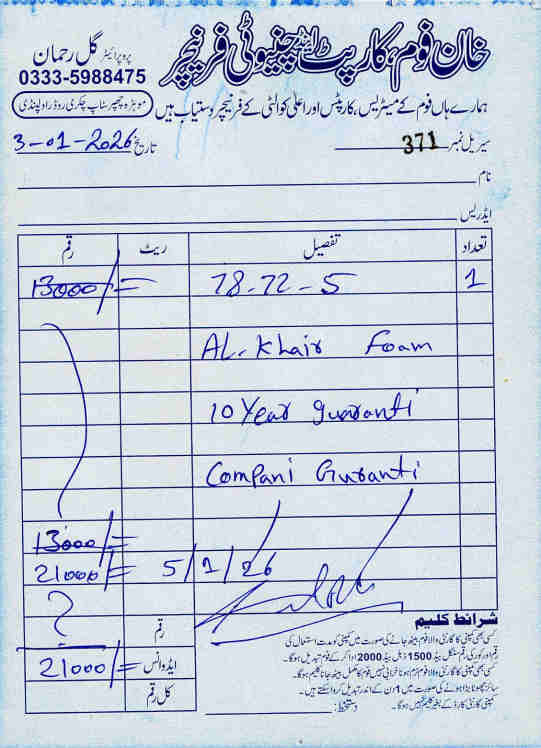 خان فوم، کارپٹ اینڈ چنیوٹی فرنیچر
پروپرائیٹر گل رحمان
0333-5988475
موہڑہ چھپر سٹاپ چکری روڈ راولپنڈی
ہمارے ہاں فوم کے میٹریس، کارپٹس اور اعلیٰ کوالٹی کے فرنیچر دستیاب ہیں
سیریل نمبر 371
تاریخ 3-01-2026
نام
ایڈریس
تعداد تفصیل ریٹ رقم
1 78-72-5 13000/=
AL-Khair Foam
10 Year guaranti
Compani Guranti
13000/=
5/1/26 21000/=
رقم
ایڈوانس 21000/=
کل رقم
شرائط کلیم
کسی بھی کمپنی کا گارنٹی والا فوم بیٹھ جانے کی صورت میں کمپنی کو مدت استعمال کی
رقم اور کور کی رقم سنگل بیڈ 1500 ڈبل بیڈ 2000 ادا کر کے فوم تبدیل ہوگا۔
کسی بھی کمپنی کا گارنٹی والا فوم نرم ہونا خرابی نہیں فوم کا مکمل بیٹھ جانا کلیم ہوگا۔
سائز چھوٹا بڑا ہونے کی صورت میں 1 دن کے اندر تبدیل کروا سکتے ہیں۔
کمپنی گارنٹی کارڈ کے بغیر کلیم نہیں ہوگا۔
دستخط: